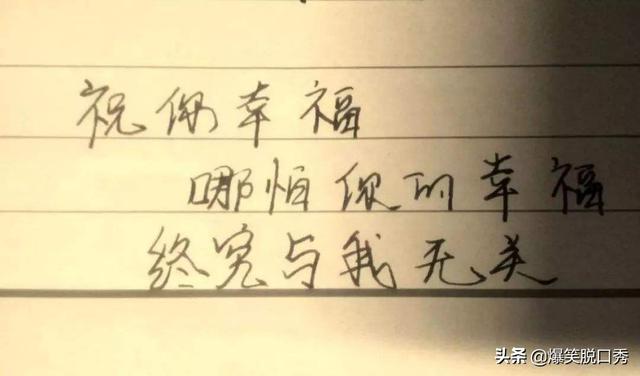 祝你幸福
哪怕你的幸福
终究与我无关
头条 @爆笑脱口秀